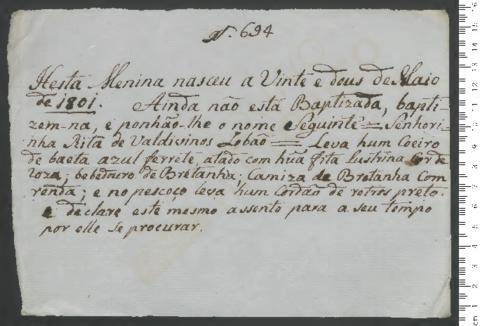 N. 694
Hesta Menina nasceu a Vinte e dous de Maio
de 1801. Ainda não está Baptizada, bapti-
zem-na, e ponhão-lhe o nome Seguinte = Senhori-
nha Rita de Valdivinos Lobão = Leva hum Coeiro
de baeta azul ferrete, atado com hũa fita Lustrina Cor de
roza; bebedruro de Bretanha; Camiza de Bretanha Com
renda; e no pescoço leva hum Cordão de retros preto.
e declare este mesmo assento para a seu tempo
por elle se procurar.